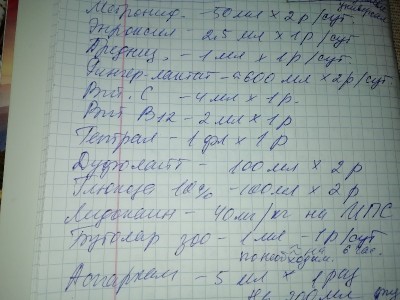 Метронид. - 50 мл × 2 р/сут
Энроксил - 2,5 мл × 1 р/сут
Предниз. - 1 мл × 1 р/сут
Рингер-лактат - 600 мл × 2 р/сут
Вит. С - 4 мл × 1 р.
Вит В12 - 2 мл × 1 р
Гептрал - 1 фл × 1 р
Дуфолайт - 100 мл × 2 р
Глюкоза 10% - 100 мл × 2 р
Лидокаин - 40 мг/кг на ИПС
Бутолар зоо - 1 мл - 1 р/сут
по необходим.
Аспаркам - 5 мл × 1 раз
на 200 мл